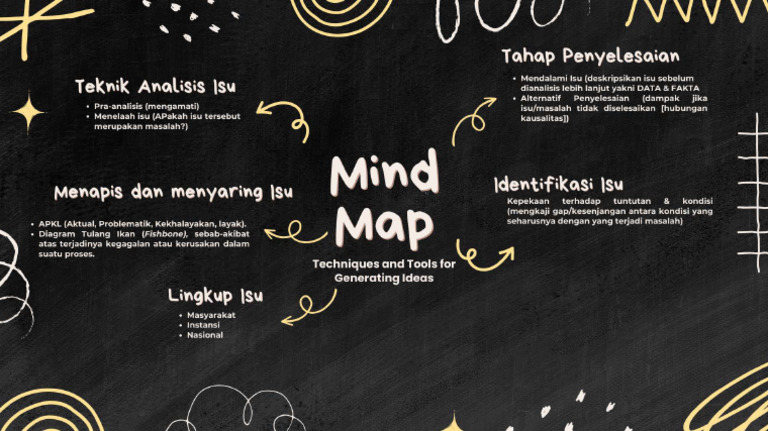 Teknik Analisis Isu
• Pra-analisis (mengamati)
• Menelaah isu (APakah isu tersebut
merupakan masalah?)
Menapis dan menyaring Isu
• APKL (Aktual, Problematik, Kekhalayakan, layak).
• Diagram Tulang Ikan (Fishbone), sebab-akibat
atas terjadinya kegagalan atau kerusakan dalam
suatu proses.
Lingkup Isu
• Masyarakat
• Instansi
• Nasional
Mind
Map
Techniques and Tools for
Generating Ideas
Tahap Penyelesaian
• Mendalami Isu (deskripsikan isu sebelum
dianalisis lebih lanjut yakni DATA & FAKTA
• Alternatif Penyelesaian (dampak jika
isu/masalah tidak diselesaikan [hubungan
kausalitas])
Identifikasi Isu
Kepekaan terhadap tuntutan & kondisi
(mengkaji gap/kesenjangan antara kondisi yang
seharusnya dengan yang terjadi masalah)